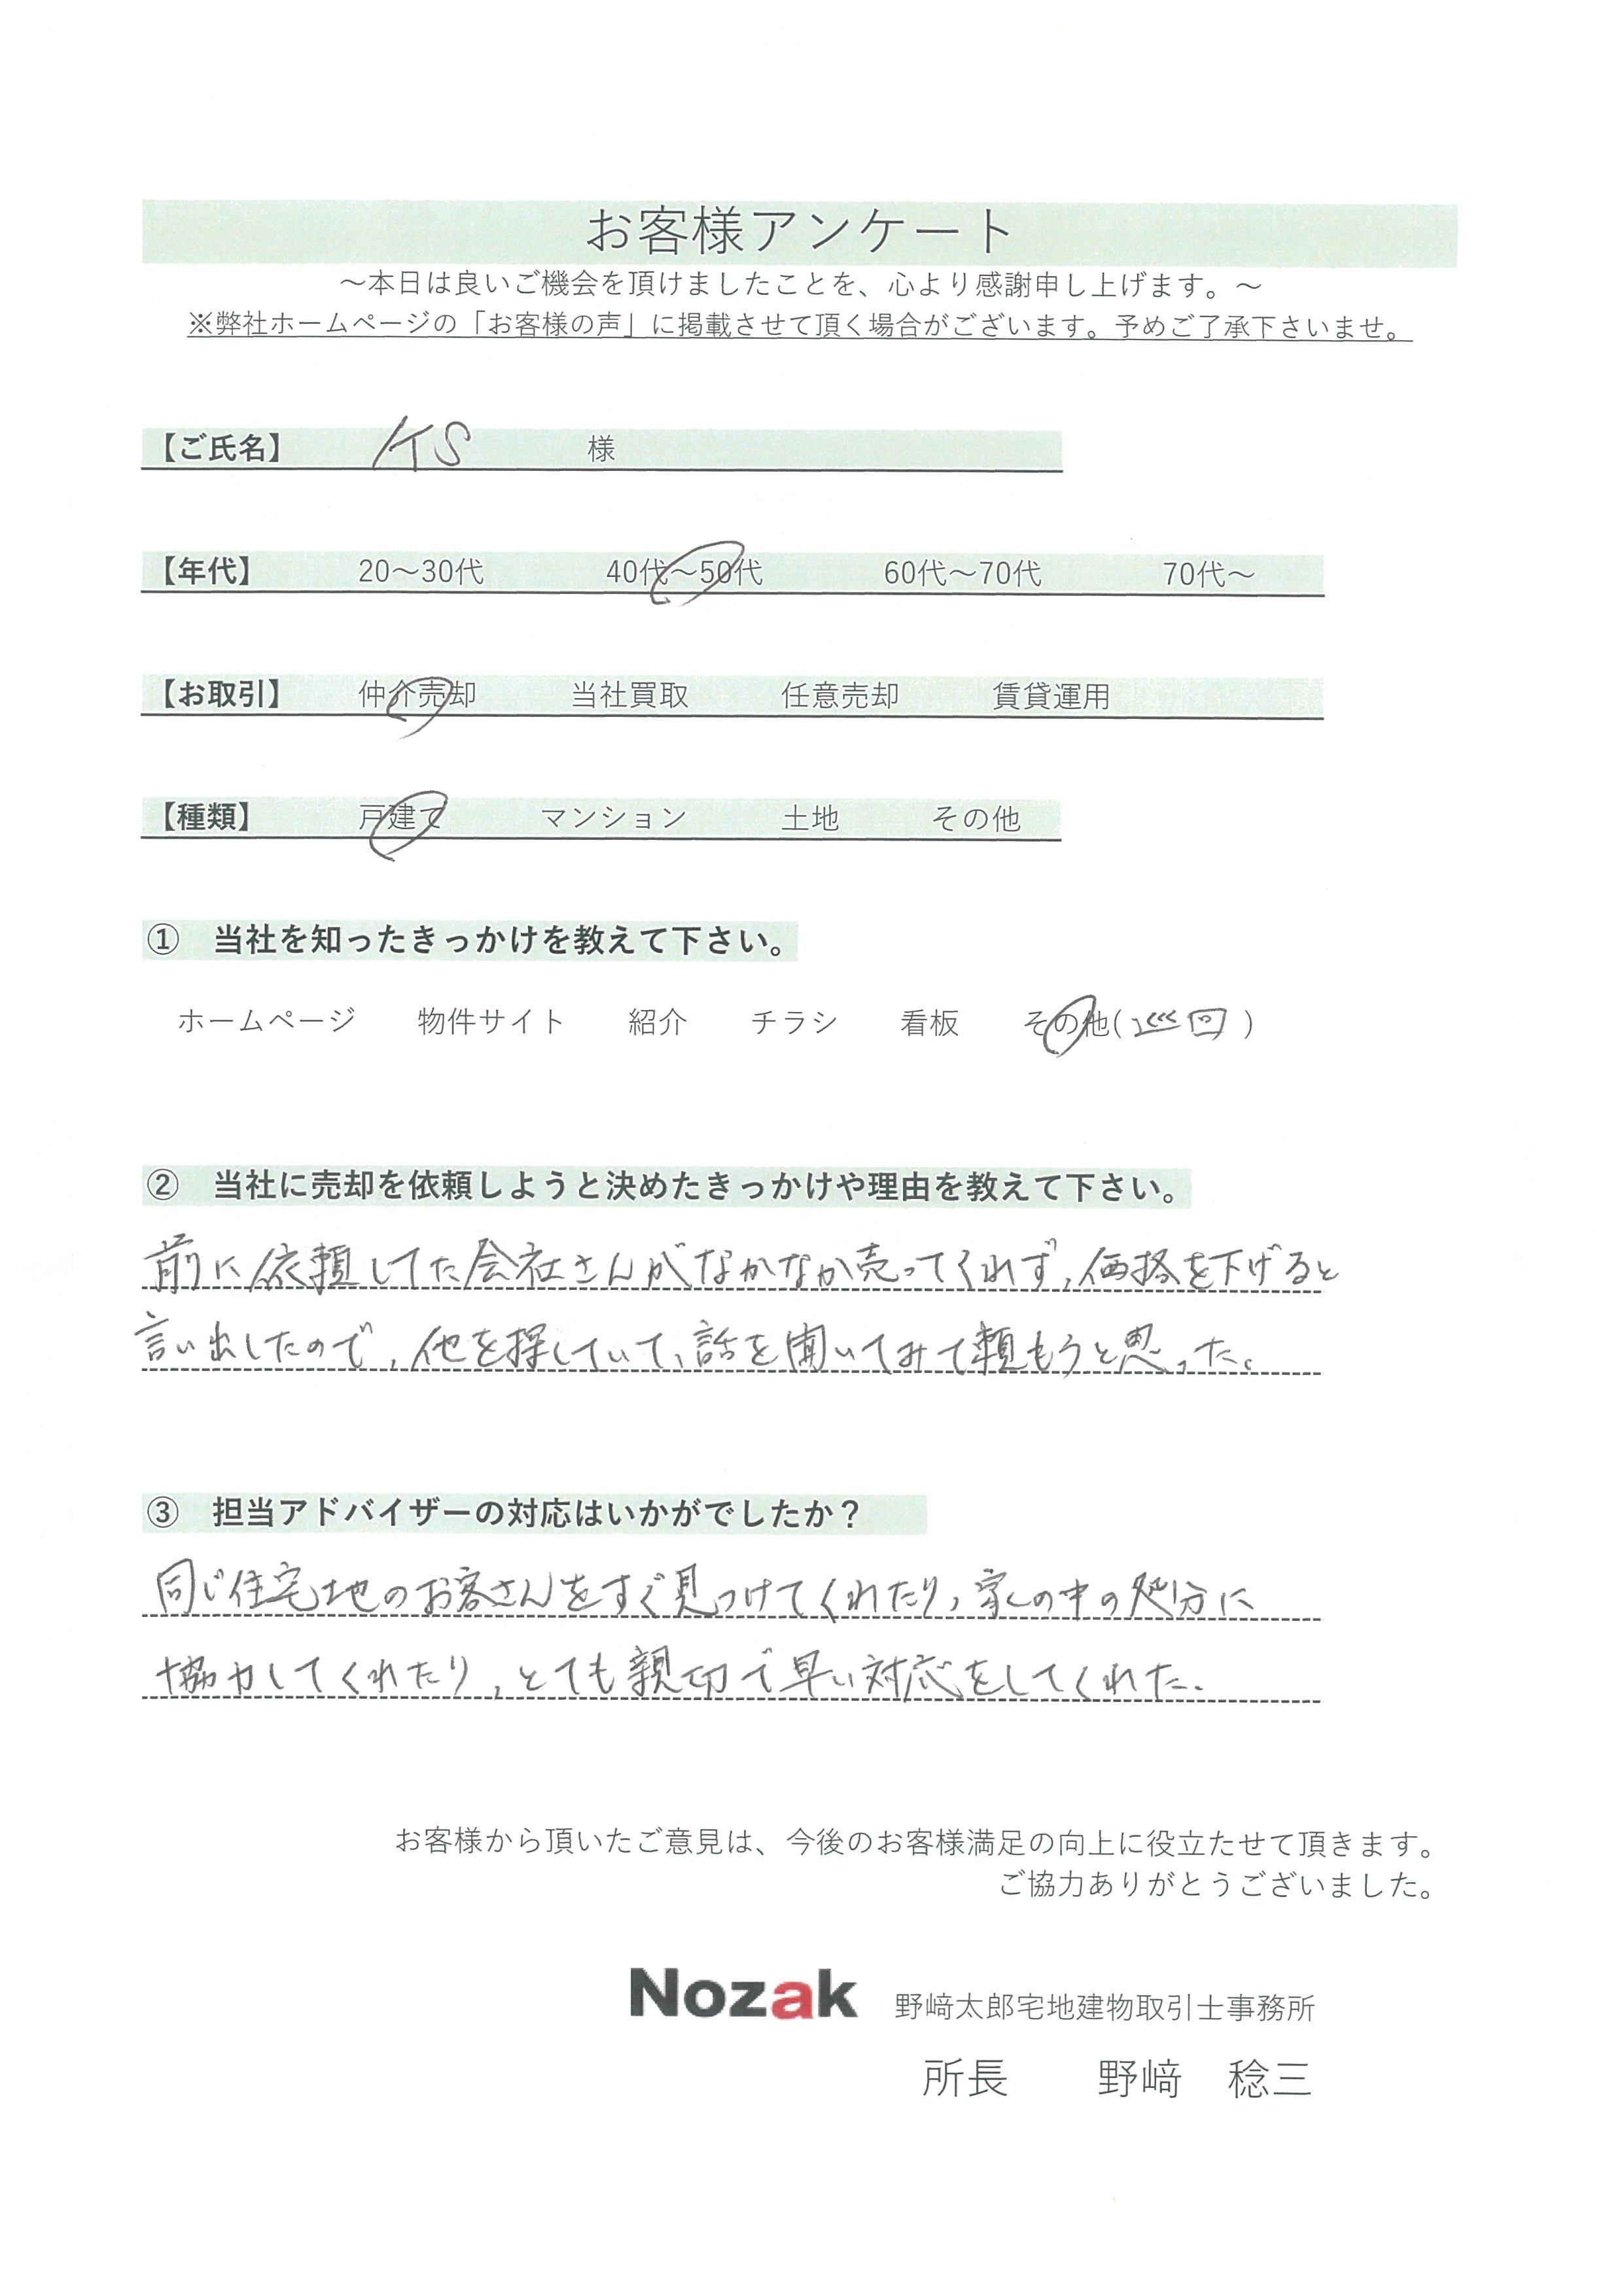 お客様アンケート
～本日は良いご機会を頂けましたことを、心より感謝申し上げます。～
※弊社ホームページの「お客様の声」に掲載させて頂く場合がございます。予めご了承下さいませ。
【ご氏名】 KS 様
【年代】 20～30代 40代～50代 60代～70代 70代～
【お取引】 仲介売却 当社買取 任意売却 賃貸運用
【種類】 戸建て マンション 土地 その他
① 当社を知ったきっかけを教えて下さい。
ホームページ 物件サイト 紹介 チラシ 看板 その他(巡回)
② 当社に売却を依頼しようと決めたきっかけや理由を教えて下さい。
前に依頼してた会社さんがなかなか売ってくれず、価格を下げると
言い出したので、他を探していて、話を聞いてみて頼もうと思った。
③ 担当アドバイザーの対応はいかがでしたか？
同じ住宅地のお客さんをすぐ見つけてくれたり、家の中の処分に
協力してくれたり、とても親切で早い対応をしてくれた。
お客様から頂いたご意見は、今後のお客様満足の向上に役立たせて頂きます。
ご協力ありがとうございました。
Nozak 野﨑太郎宅地建物取引士事務所
所長 野﨑 稔三